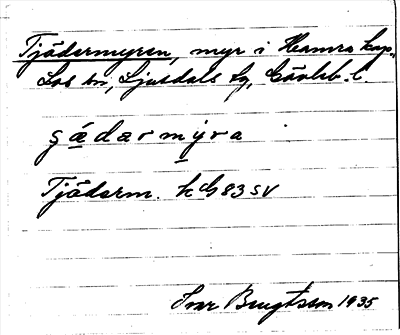 Tjädermyren, myr i Hamra kap.,
Los sn, Ljusdals tg, Gävleb. l.
gädarmýra
Tjäderm. kG83SV
Ivar Bengtsson 1935